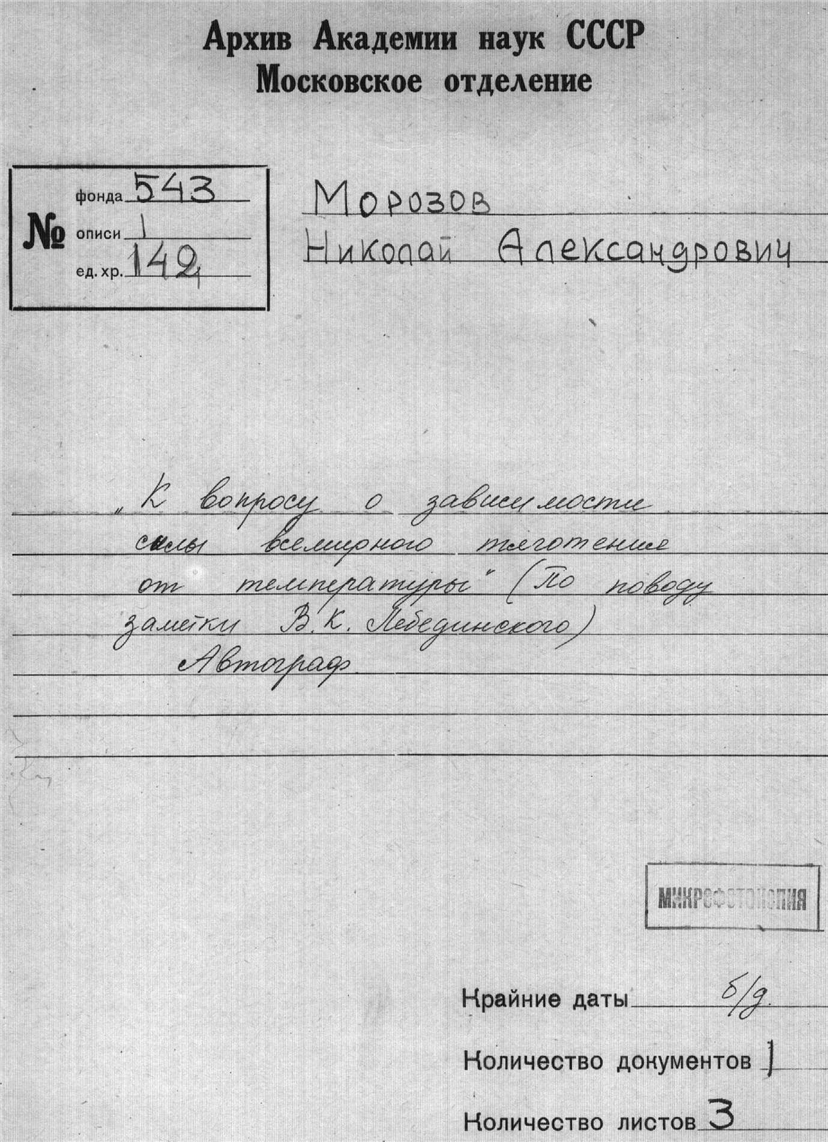 Архив Академии наук СССР
Московское отделение
№
фонда 543
описи 1
ед. хр. 142
Морозов
Николай Александрович
„К вопросу о зависимости
силы всемирного тяготения
от температуры" (По поводу
заметки В.К. Лебединского)
Автограф.
МИКРОФОТОКОПИЯ
Крайние даты б/д.
Количество документов 1
Количество листов 3